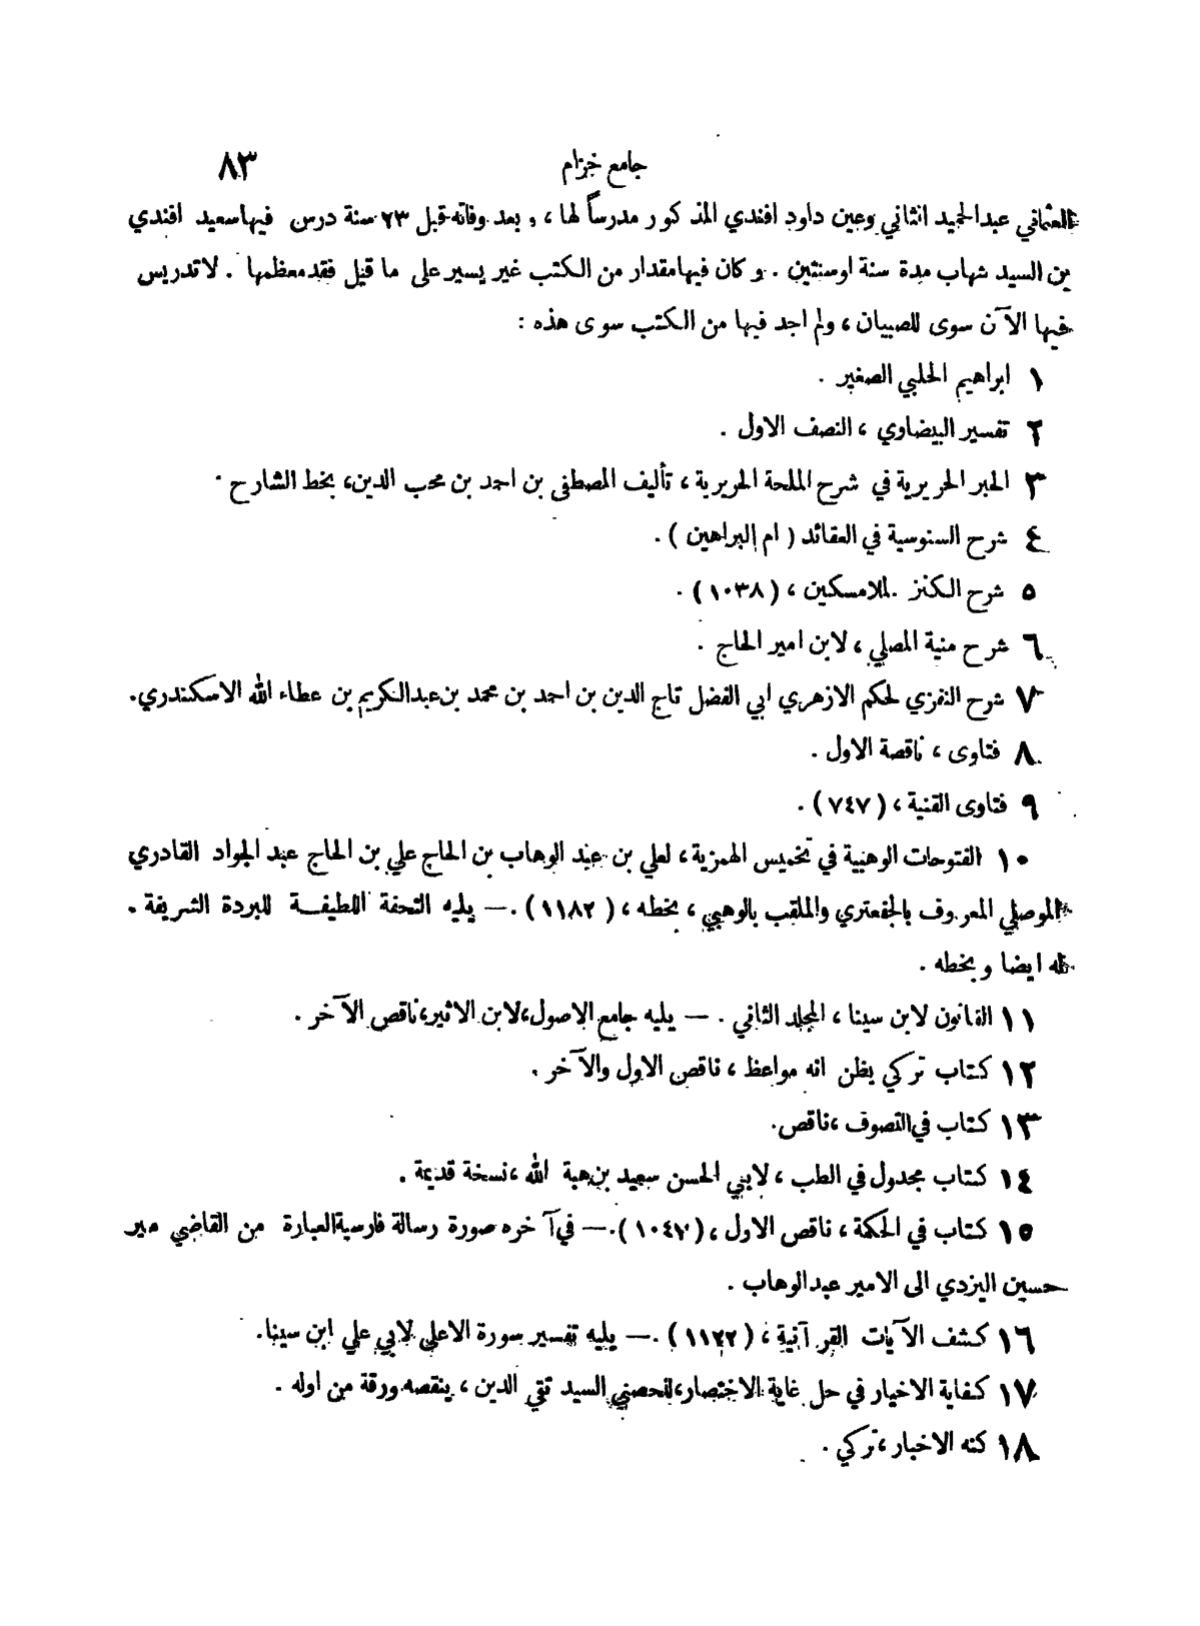 جامع خزام ٨٣
العثماني عبدالحميد الثاني وعين داود افندي المذكور مدرساً لها ، وبعد وفاته قبل ٢٣ سنة درس فيها سعيد افندي
بن السيد شهاب مدة سنة او سنتين . وكان فيها مقدار من الكتب غير يسير على ما قيل فقد معظمها . لا تدريس
فيها الآن سوى للصبيان ، ولم اجد فيها من الكتب سوى هذه :
١ ابراهيم الحلبي الصغير .
٢ تفسير البيضاوي ، النصف الاول .
٣ الحبر الحريرية في شرح الملحة الحريرية ، تأليف المصطفى بن احمد بن محب الدين، بخط الشارح .
٤ شرح السنوسية في العقائد ( ام البراهين ) .
٥ شرح الكنز لملامسكين ، (١٠٣٨) .
٦ شرح منية المصلي ، لابن امير الحاج .
٧ شرح النفزي لحكم الازهري ابي الفضل تاج الدين بن احمد بن محمد بن عبدالكريم بن عطاء الله الاسكندري.
٨ فتاوى ، ناقصة الاول .
٩ فتاوى القنية ، (٧٤٧) .
١٠ الفتوحات الوهبية في تخميس الهمزية ، لعلي بن عبد الوهاب بن الحاج علي بن الحاج عبد الجواد القادري
الموصلي المعروف بالجفعتري والملقب بالوهبي ، بخطه ، (١١٨٢) .— يليه التحفة اللطيفة للبردة الشريفة .
له ايضا وبخطه .
١١ القانون لابن سينا ، المجلد الثاني . — يليه جامع الاصول،لابن الاثير،ناقص الآخر .
١٢ كتاب تركي يظن انه مواعظ ، ناقص الاول والآخر .
١٣ كتاب في التصوف ،ناقص.
١٤ كتاب مجدول في الطب ، لابي الحسن سعيد بن هبة الله ،نسخة قديمة .
١٥ كتاب في الحكمة ، ناقص الاول ، (١٠٤٧).— في آخره صورة رسالة فارسية العبارة من القاضي مير
حسين اليزدي الى الامير عبدالوهاب .
١٦ كشف الآيات القرآنية ، (١١٢٢) .— يليه تفسير سورة الاعلى لابي علي ابن سينا.
١٧ كفاية الاخيار في حل غاية الاختصار،للحصني السيد تقي الدين ، ينقصه ورقة من اوله .
١٨ كنه الاخبار ،تركي .